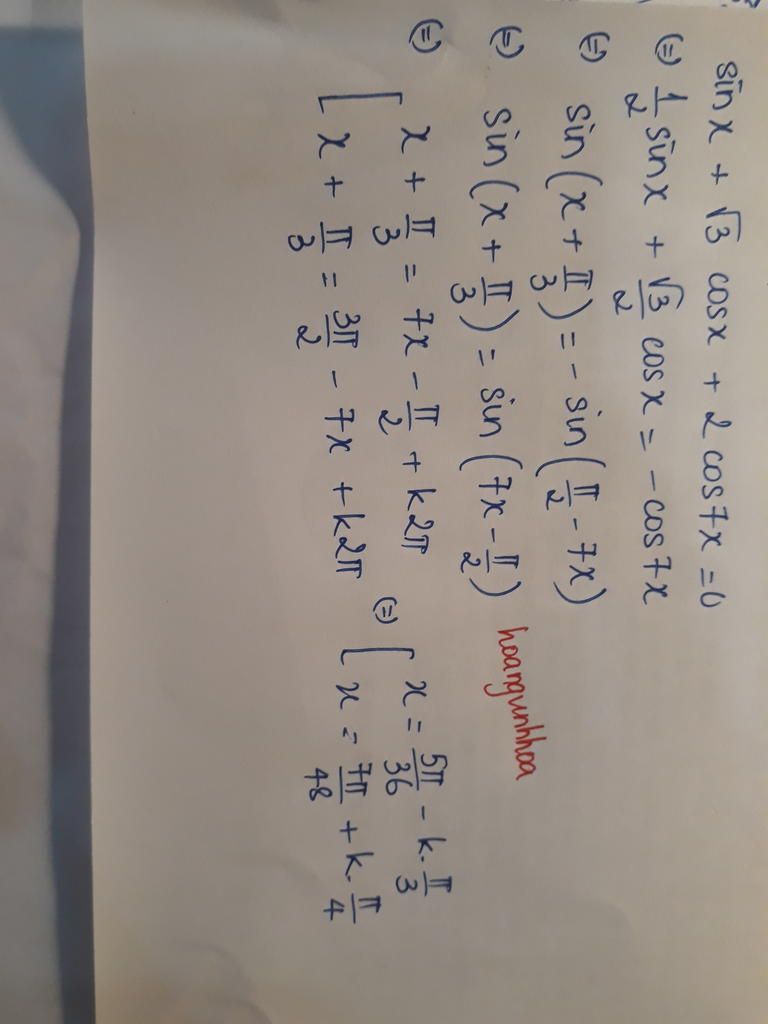 sinx + √3 cosx + 2cos7x = 0
(=) 1/2 sinx + √3/2 cosx = -cos7x
(=) sin(x + π/3) = -sin(π/2 - 7x)
(=) sin(x + π/3) = sin(7x - π/2) hoangvinhhoa
(=) [ x + π/3 = 7x - π/2 + k2π (=) [ x = 5π/36 - k.π/3
x + π/3 = 3π/2 - 7x + k2π x = 7π/48 + k.π/4